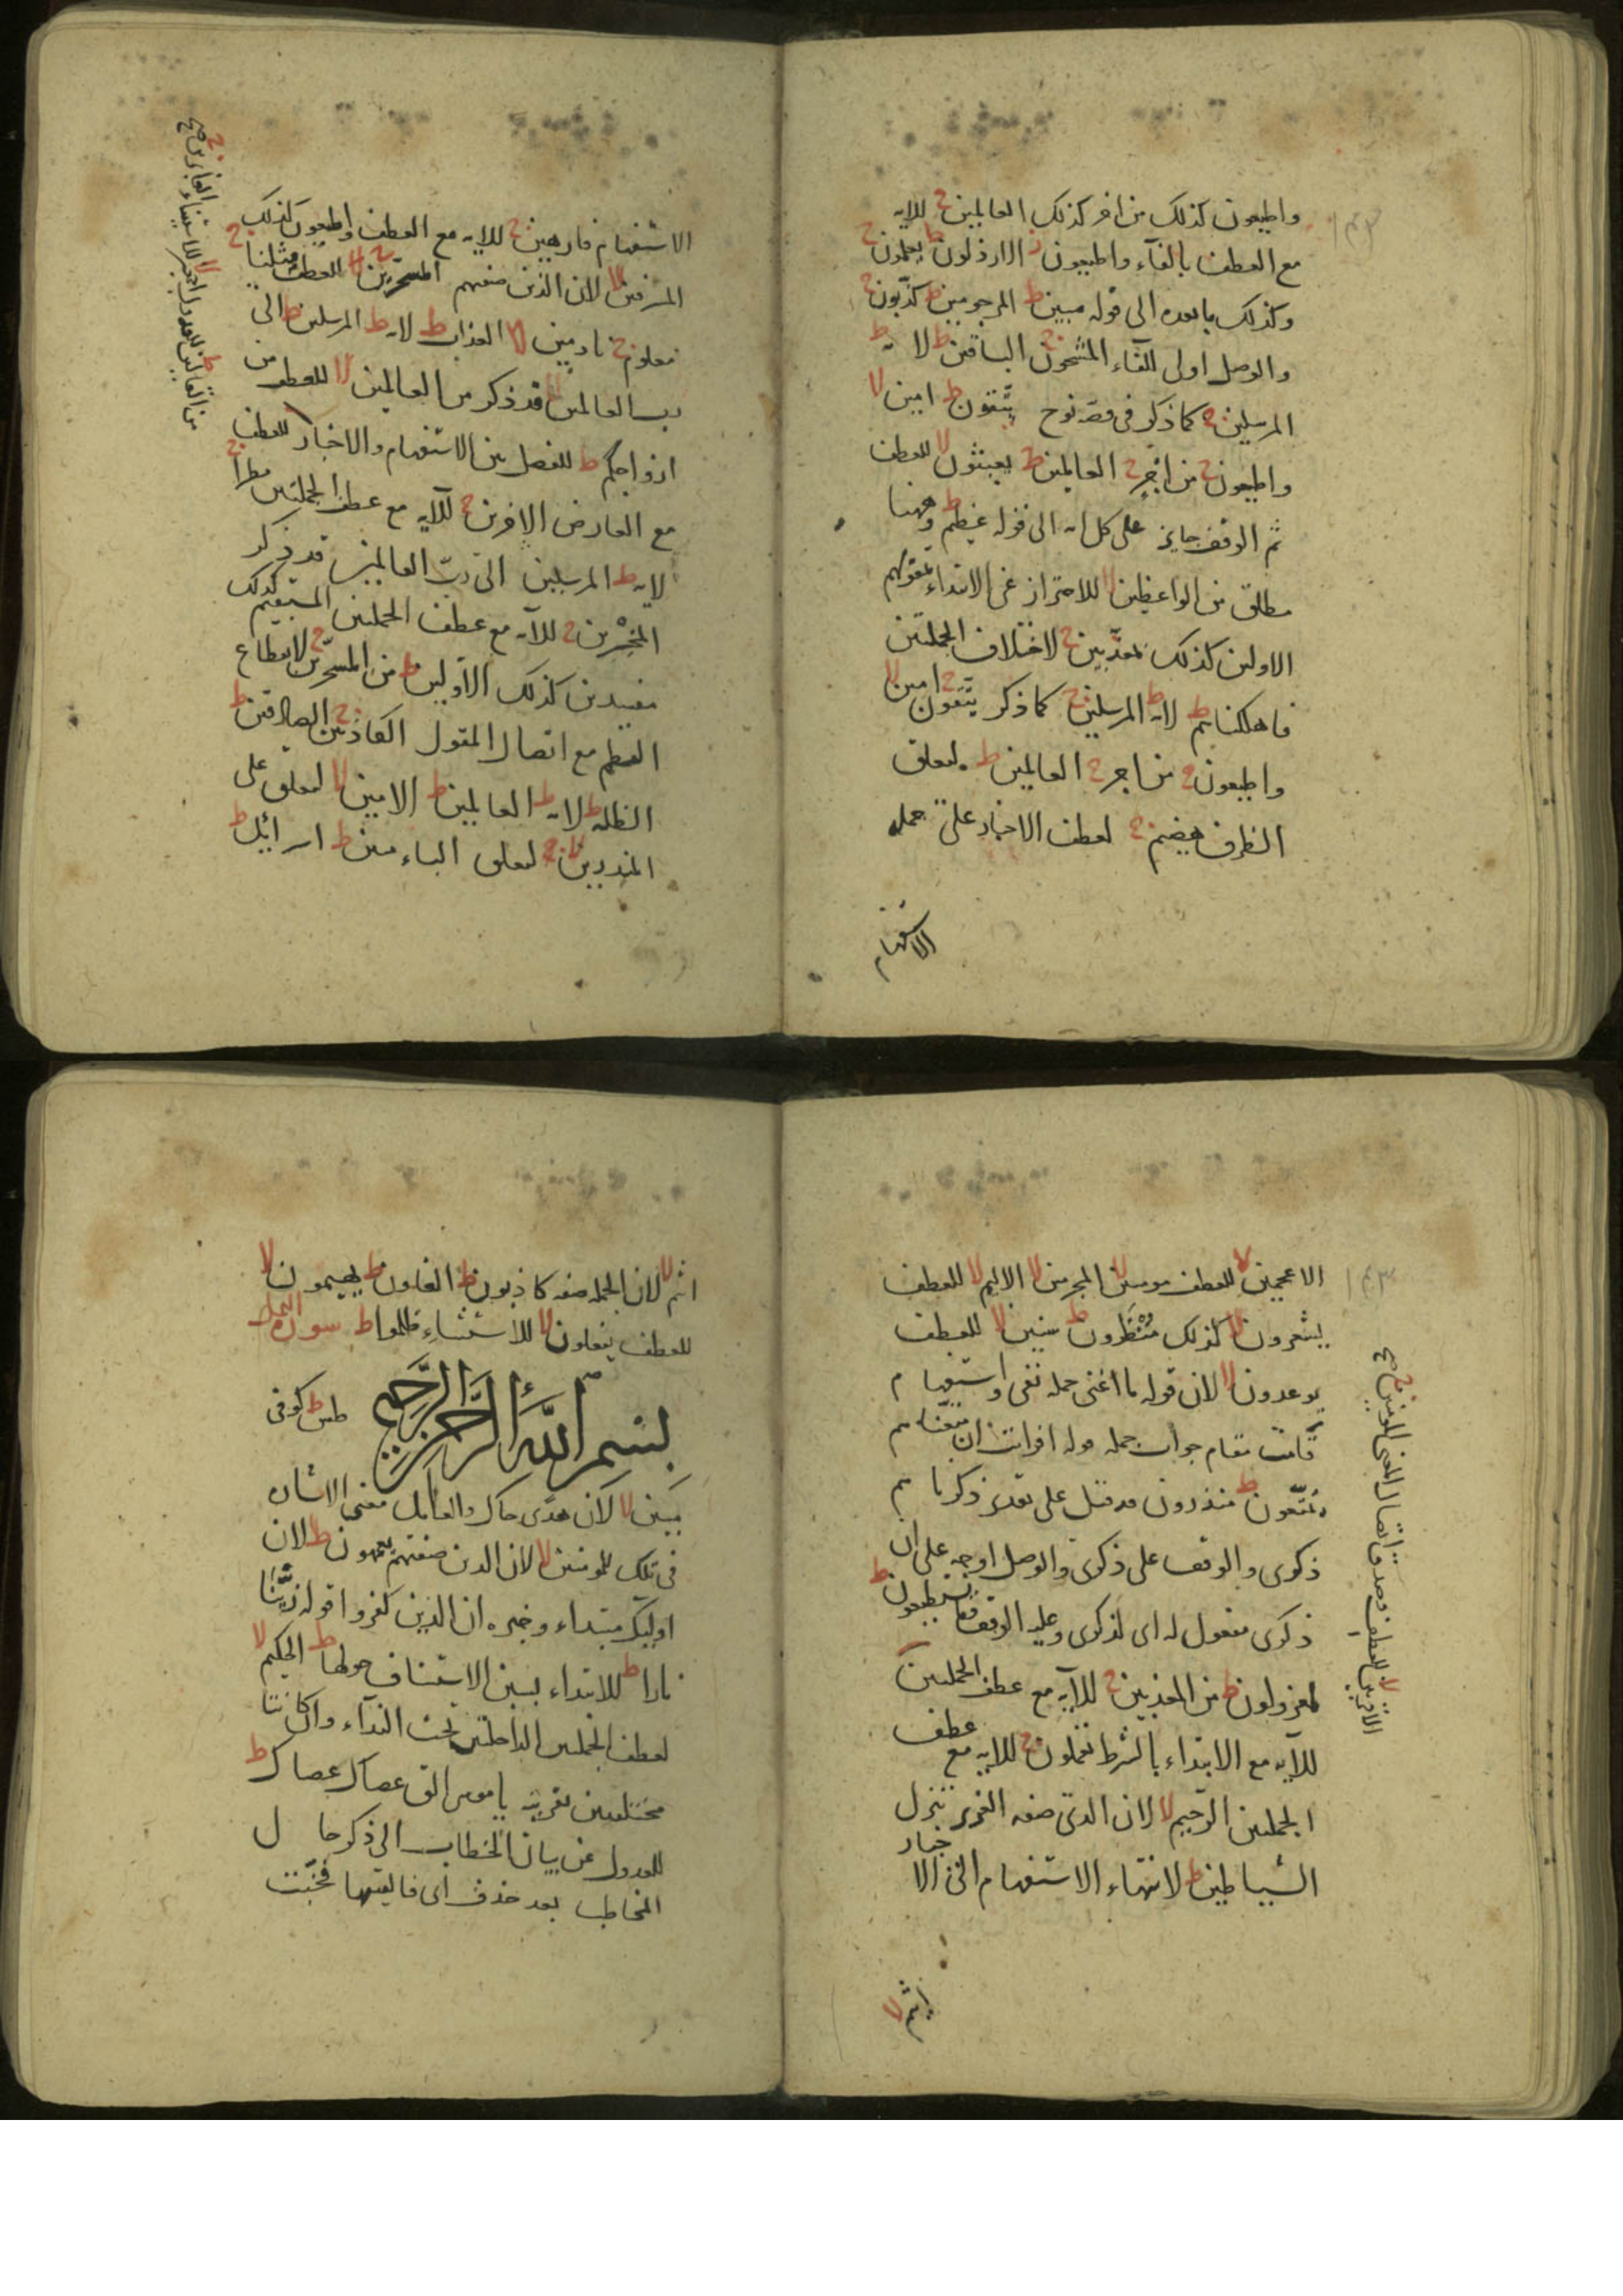 واطيعون كذلك من اجر كذلك العالمين ج للايه
مع العطف بالفآء واطيعون ط الارذلون ط يعملون ج
وكذلك ما بعده الى قوله مبين ط المرجومين ط كذّبون ج
والوصل اولى للفاء المشحون ج الباقين ط لايه ط
المرسلين ج كما ذكر فى قصة نوح يتّقون ط امين لا
واطيعون ج من اجرٍ ج العالمين ط يعبثون لا للعطف
ثم الوقف جايز على كل ايه الى قوله عظيم ط وههنا
مطلق من الواعظين لا للاحتراز عن الابتداء بمقولهم
الاولين كذلك بمعذّبين ج لاختلاف الجملتين
فاهلكناهم ط لايه ط المرسلين ج كما ذكر يتّقون ج امين لا
واطيعون ج من اجر ج العالمين ط لتعلق
الظرف هضيم ج لعطف الاخبار على جمله
الاستفهام
الاستفهام فارهين ج للايه مع العطف واطيعون كذلك
المسرفين لا لان الذين صفتهم المسحّرين ج مثلنا ج
معلوم ج نادمين لا العذاب ط لايه ط المرسلين ط الى
رب العالمين قد ذكر من العالمين لا للعطف من
ازواجكم ط للفصل بين الاستفهام والاخبار للعطف
مع العارض الاخرين ج للآيه مع عطف الجملتين مطرا ج
لايه ط المرسلين الى ربّ العالمين قد ذكر
المخسرين ج للآيه مع عطف الجملتين المستقيم كذلك
مفسدين كذلك الاولين ط من المسحّرين ج لانقطاع
النظم مع اتصال المقول الكاذبين ج الصادقين ط
الظلة ط لايه ط العالمين ط الامين لا لتعلق على
المنذرين لتعلق الباء مبين ط اسرائيل ط
الاعجمين لا للعطف مومنين لا المجرمين لا الاليم لا للعطف
يشعرون لا كذلك منظرون ط سنين لا للعطف
يوعدون لا لان قوله ما اغنى جمله نفى واستفهام
قامت مقام جواب جمله قوله افرايت ان متّعناهم
يمتّعون ط منذرون قد قيل على تقدير ذكرناهم
ذكرى والوقف على ذكرى والوصل اوجه على ان
ذكرى مفعول له اى لذكرى وعليه الوقف يستطيعون ط
لمعزولون ط من المعذبين ج للآيه مع عطف الجملتين
للآيه مع الابتداء بالشرط تعملون ج للايه مع عطف
الجملتين الرّحيم لا لان الذى صفه العزيز تنزل
الشياطين ط لانتهاء الاستفهام الى الاخبار
اثيم لا
اثيم لا لان الجمله صفه كاذبون ط الغاون ط يهيمون لا
للعطف يفعلون لا للاستثناء ظلموا ط سورة النمل
بسم الله الرحمن الرحيم طس ط كوفى
مبين لا لان هدى حال والعامل معنى الاشاره
فى تلك للمومنين لا لان الذين صفتهم يعمهون ط لان
اوليك مبتداء وخبره ان الذين كفروا قوله زيّنّا
نارا ط للابتداء بسين الاستيناف حولها ط الحكيم لا
لعطف الجملتين الداخلتين تحت النداء وان كانتا
مختلفتين تقريره يا موسى الق عصاك عصاك ط
للعدول عن بيان الخطاب الى ذكر حال
المخاطب بعد حذف اى فالقيها فحيّت